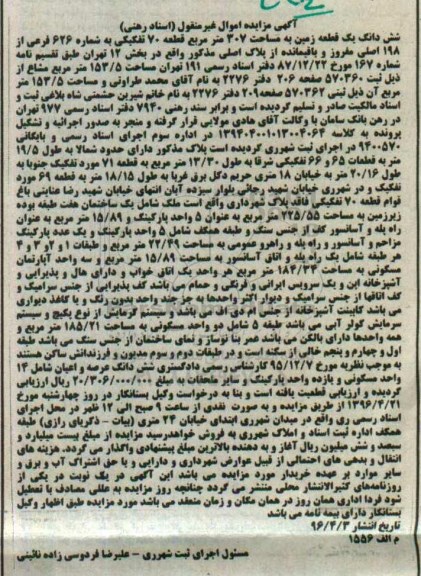 آگهی مزایده اموال غیرمنقول (اسناد رهنی)
شش دانگ یک قطعه زمین به مساحت ۳۰۷ متر مربع قطعه ۷۰ تفکیکی به شماره ۶۲۶ فرعی از
۱۹۸ اصلی مفروز و باقیمانده از پلاک اصلی مذکور واقع در بخش ۱۲ تهران طبق تقسیم نامه
شماره ۱۶۷ مورخ ۸۷/۱۲/۲۲ دفتر اسناد رسمی ۱۹۱ تهران مساحت ۱۵۳/۵ متر مربع مشاع از
ذیل ثبت ۵۷۰۳۶۰ صفحه ۲۰۶ دفتر ۲۲۷۶ به نام آقای محمد طراوتی و مساحت ۱۵۳/۵ متر
مربع آن ذیل ثبتی ۵۷۰۳۶۲ صفحه ۲۰۹ دفتر ۲۲۷۶ به نام خانم شیرین حشمتی شاه بلاغی ثبت و
اسناد مالکیت صادر و تسلیم گردیده است و برابر سند رهنی ۷۹۴۰ دفتر اسناد رسمی ۹۷۷ تهران
در رهن بانک سامان با وکالت آقای هادی مولایی قرار گرفته و منجر به صدور اجرائیه و تشکیل
پرونده به کلاسه ۱۳۹۴۰۴۰۰۱۰۱۳۰۰۴۰۶۴ در اداره سوم اجرای اسناد رسمی و بایگانی
۹۴۰۰۵۷۰ در اجرای ثبت شهرری گردیده است پلاک مذکور دارای حدود شمالا به طول ۱۹/۵
متر به قطعات ۶۵ و ۶۶ تفکیکی شرقا به طول ۱۳/۳۰ متر مربع به قطعه ۷۱ مورد تفکیک جنوبا به
طول ۲۰/۱۶ متر به خیابان ۱۸ متری حریم دکل برق غربا به طول ۱۸/۱۵ متر به قطعه ۶۹ مورد
تفکیک و در شهرری خیابان شهید رجائی بلوار سیزده آبان انتهای خیابان شهید رضا عنایتی باغ
قوام قطعه ۷۰ تفکیکی فاقد پلاک شهرداری واقع است ملک شامل یک ساختمان هفت طبقه بوده
زیرزمین به مساحت ۲۲۵/۵۵ متر مربع به عنوان ۵ واحد پارکینگ و ۱۵/۸۹ متر مربع به عنوان
راه پله و آسانسور کف از جنس سنگ و طبقه همکف شامل ۵ واحد پارکینگ و یک عدد پارکینگ
مزاحم و آسانسور و راه پله و راهرو عمومی به مساحت ۲۲/۴۹ متر مربع و طبقات ۱ و ۲ و ۳ و ۴
هر طبقه شامل یک راه پله و اتاق آسانسور به مساحت ۱۵/۸۹ متر مربع و سه واحد آپارتمان
مسکونی به مساحت ۱۸۴/۳۳ متر مربع هر واحد یک اتاق خواب و دارای هال و پذیرایی و
آشپزخانه اپن و یک سرویس ایرانی و فرنگی و حمام می باشد کف پذیرایی از جنس سرامیک و
کف اتاقها از جنس سرامیک و دیوار اکثر واحدها به جز چند واحد بدون رنگ و یا کاغذ دیواری
می باشد کابینت آشپزخانه از جنس ام دی اف می باشد و سیستم گرمایش از نوع پکیج و سیستم
سرمایش کولر آبی می باشد طبقه ۵ شامل دو واحد مسکونی به مساحت ۱۸۵/۲۱ متر مربع و
همه واحدها دارای بالکن می باشد عمر بنا نوساز و نمای ساختمان از جنس سنگ می باشد طبقه
اول و چهارم و پنجم خالی از سکنه است و در طبقات دوم و سوم مدیون و فرزندانش ساکن هستند
به موجب نظریه مورخ ۹۵/۱۲/۷ کارشناس رسمی دادگستری شش دانگ عرصه و اعیان شامل ۱۴
واحد مسکونی و یازده واحد پارکینگ و سایر ملحقات به مبلغ ۲۰/۳۰۶/۰۰۰/۰۰۰ ریال ارزیابی
گردیده و ارزیابی قطعیت یافته است و بنا به درخواست وکیل بستانکار در روز چهارشنبه مورخ
۱۳۹۶/۴/۲۱ از طریق مزایده و به صورت نقدی از ساعت ۹ صبح الی ۱۲ ظهر در محل اجرای
اسناد رسمی ری واقع در میدان شهرری ابتدای خیابان ۲۴ متری (بیات - ذکریای رازی) طبقه
همکف اداره ثبت اسناد و املاک شهرری به فروش خواهد رسید مزایده از مبلغ بیست میلیارد و
سیصد و شش میلیون ریال آغاز و به دهنده بالاترین مبلغ پیشنهادی واگذار می گردد. هزینه های
انتقال و بدهی های احتمالی از قبیل عوارض شهرداری و دارایی و یا حق اشتراک آب و برق و
سایر موارد بر عهده خریدار مورد مزایده می باشد این آگهی در یک نوبت در یکی از
روزنامه‌های کثیرالانتشار محلی منتشر می گردد چنانچه روز مزایده به عللی مصادف با تعطیل
شود فردا اداری همان روز در همان مکان و زمان منعقد می باشد مورد مزایده طبق اظهار وکیل
بستانکار دارای بیمه نامه می باشد
تاریخ انتشار ۹۶/۴/۳
م الف ۱۵۵۶
مسئول اجرای ثبت شهرری - علیرضا فردوسی زاده نائینی